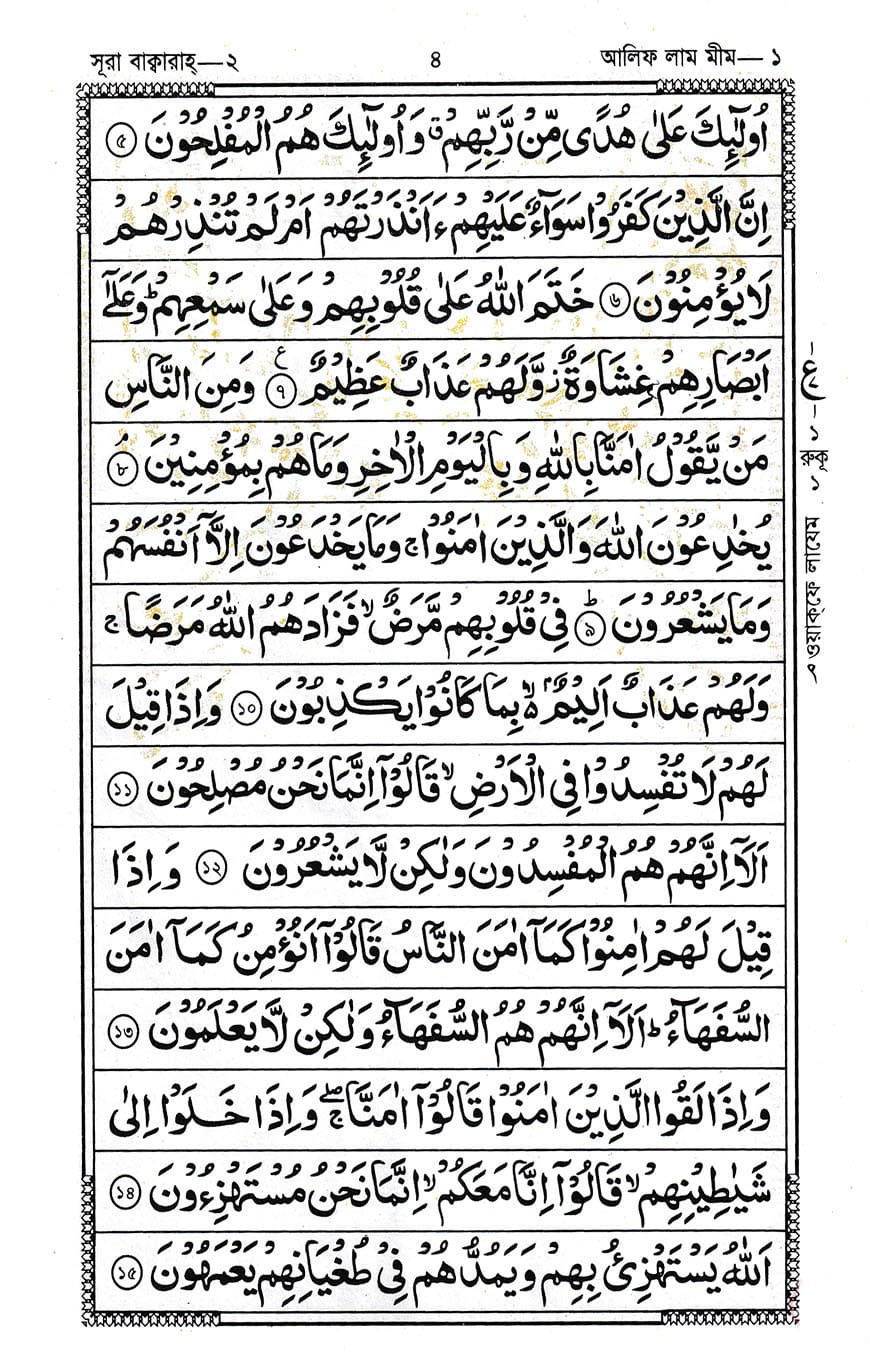 সূরা বাক্বারাহ্—২ ৪ আলিফ লাম মীম—১
اُولٰٓئِكَ عَلٰى هُدًى مِّنْ رَّبِّهِمْ ۗ وَاُولٰٓئِكَ هُمُ الْمُفْلِحُوْنَ ⓪ ৫
اِنَّ الَّذِيْنَ كَفَرُوْا سَوَآءٌ عَلَيْهِمْ ءَاَنْذَرْتَهُمْ اَمْ لَمْ تُنْذِرْهُمْ
لَا يُؤْمِنُوْنَ ৬ خَتَمَ اللّٰهُ عَلٰى قُلُوْبِهِمْ وَعَلٰى سَمْعِهِمْ ؕ وَعَلٰٓى
اَبْصَارِهِمْ غِشَاوَةٌ ز وَّلَهُمْ عَذَابٌ عَظِيْمٌ ৭ ع وَمِنَ النَّاسِ
مَنْ يَّقُوْلُ اٰمَنَّا بِاللّٰهِ وَبِالْيَوْمِ الْاٰخِرِ وَمَا هُمْ بِمُؤْمِنِيْنَ ۘ ৮
يُخٰدِعُوْنَ اللّٰهَ وَالَّذِيْنَ اٰمَنُوْا ج وَمَا يَخْدَعُوْنَ اِلَّآ اَنْفُسَهُمْ
وَمَا يَشْعُرُوْنَ ؕ ৯ فِيْ قُلُوْبِهِمْ مَّرَضٌ ۙ فَزَادَهُمُ اللّٰهُ مَرَضًا ج
وَلَهُمْ عَذَابٌ اَلِيْمٌۢ ۙ بِمَا كَانُوْا يَكْذِبُوْنَ ১০ وَاِذَا قِيْلَ
لَهُمْ لَا تُفْسِدُوْا فِى الْاَرْضِ ۙ قَالُوْٓا اِنَّمَا نَحْنُ مُصْلِحُوْنَ ১১
اَلَآ اِنَّهُمْ هُمُ الْمُفْسِدُوْنَ وَلٰكِنْ لَّا يَشْعُرُوْنَ ১২ وَاِذَا
قِيْلَ لَهُمْ اٰمِنُوْا كَمَآ اٰمَنَ النَّاسُ قَالُوْٓا اَنُؤْمِنُ كَمَآ اٰمَنَ
السُّفَهَآءُ ؕ اَلَآ اِنَّهُمْ هُمُ السُّفَهَآءُ وَلٰكِنْ لَّا يَعْلَمُوْنَ ১৩
وَاِذَا لَقُوا الَّذِيْنَ اٰمَنُوْا قَالُوْٓا اٰمَنَّا ج ۖ وَاِذَا خَلَوْا اِلٰى
شَيٰطِيْنِهِمْ ۙ قَالُوْٓا اِنَّا مَعَكُمْ ۙ اِنَّمَا نَحْنُ مُسْتَهْزِءُوْنَ ১৪
اَللّٰهُ يَسْتَهْزِئُ بِهِمْ وَيَمُدُّهُمْ فِيْ طُغْيَانِهِمْ يَعْمَهُوْنَ ১৫
ع – ১ রুকূ ১
ওয়াক্ফে লাযেম